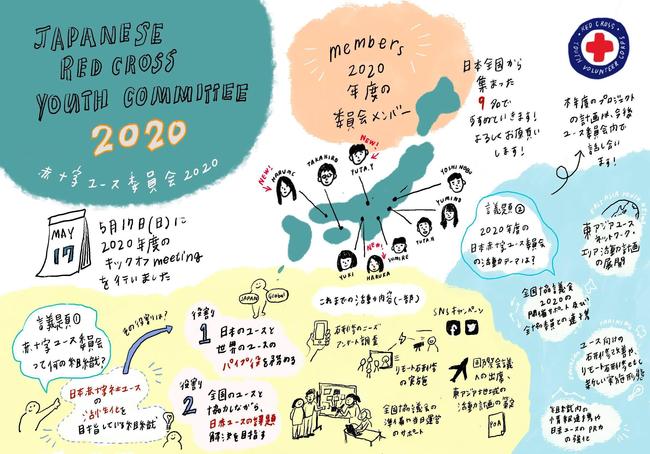 JAPANESE
RED CROSS
YOUTH COMMITTEE
2020
赤十字ユース委員会2020
members
2020
年度の
委員会メンバー
日本全国から
集まった
9名で
すすめていきます!
よろしくお願い
します!
RED CROSS
YOUTH VOLUNTEER CORPS
本年度のプロジェクト
の計画は、今後
ユース委員会内で
話し合い
ます!
NEW!
MOMOME
TAKAHIRO
NEW!
YUTA.Y
YOSHINOBU
YUMING
YUTA.H
SUMIRE
NEW!
HARUKA
YUKI
MAY
17
5月17日(日)に
2020年度の
キックオフmeeting
を行いました
議題①
赤十字ユース委員会
って何の組織?
日本赤十字社ユース
の活性化を
目指している組織
主な役割は?
JAPAN
Global
役割
1
日本のユースと
世界のユースの
パイプ役を務める
役割
2
全国のユースと
協力しながら、
日本ユースの課題
解決を目指す
これまでの活動内容(一部)
赤十字のユーズ
アンケート調査
リモート赤十字
の実施
全国協議会の
準備や当日運営
のサポート
SNSキャンペーン
国際会議
への出席、
東アジア地域の
活動計画の策定
YOA
議題②
2020年度の
日本赤十字ユース委員会
の活動テーマは?
東アジアユース
ネットワーク・
エリア活動計画
の展開
全国協議会
2020の
開催サポート及び
全協委員との連携
ユース向けの
赤十字R&D改善や、
リモート赤十字など
新しい実施形態
組織内の
情報連携や
日本ユースのPR力
の強化